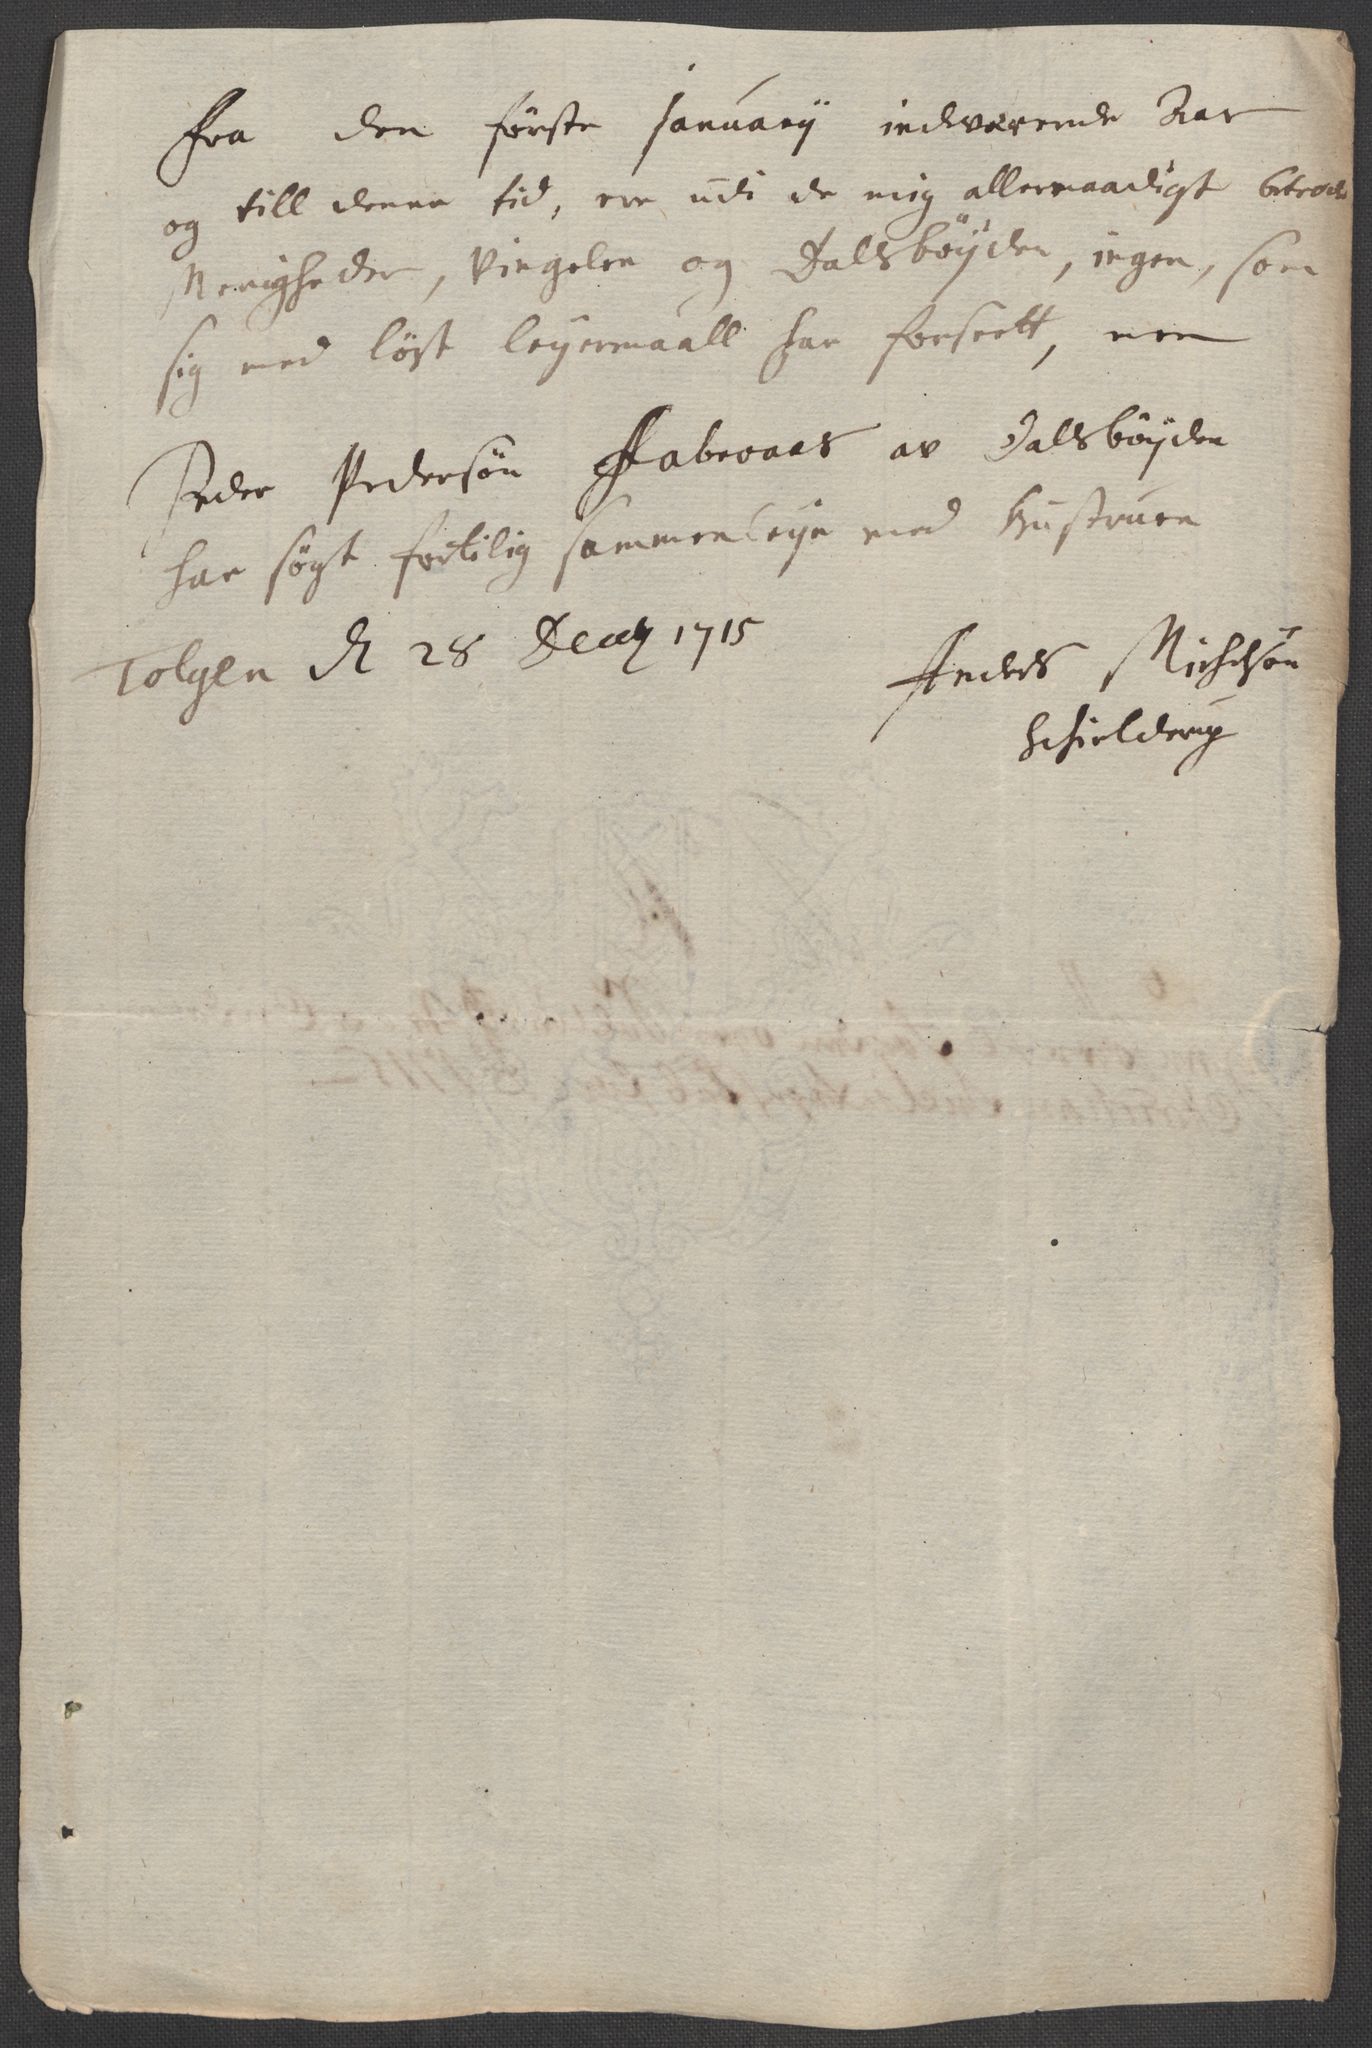 Fra den første Januarij indværende Aar
og till denne tid, ere udi de mig allernaadigst betroede
Menigheder, Vingelen og Dalsbøyden, ingen, som
sig med løst leyermaall har forseett, men
Peder Pedersøn Aabraas av Dalsbøyden
har søgt fortilig sammenleye med Hustruen
Tolgen d 28 Decemb 1715
Anders Michelsøn
Schielderup